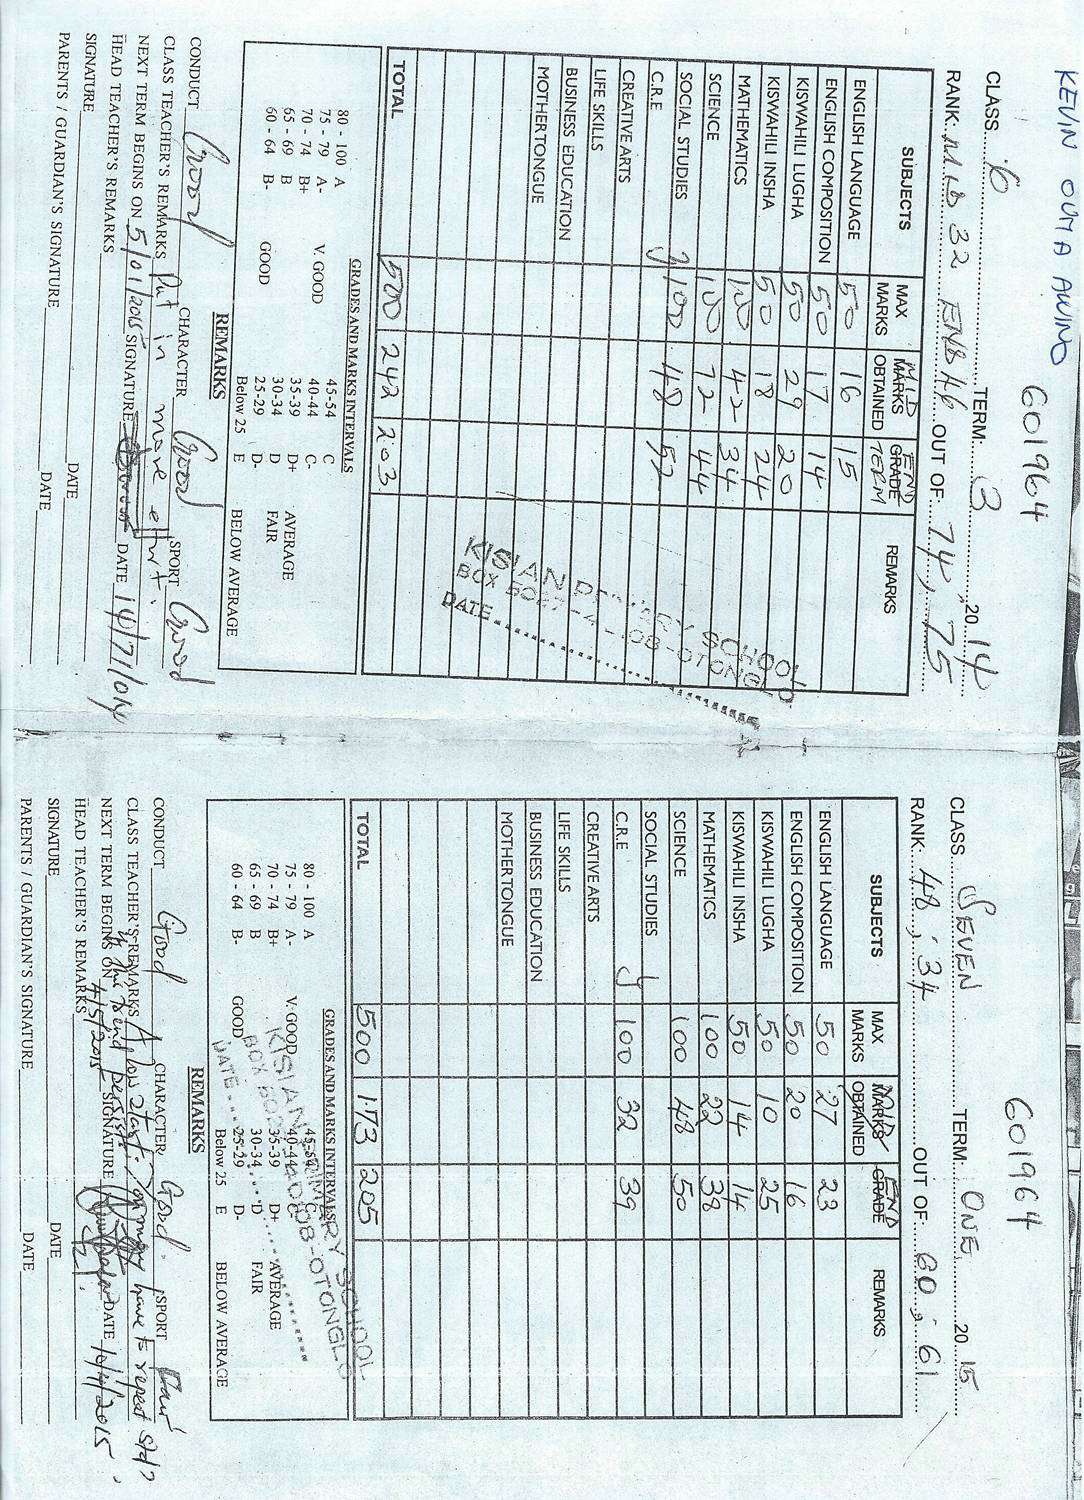 KEVIN OUMA AWINO
601964
CLASS 6 TERM: 3 20 14
RANK: MID 32 END 46 OUT OF: 74, 75
SUBJECTS MAX MARKS MID MARKS OBTAINED END GRADE TERM REMARKS
ENGLISH LANGUAGE 50 16 15
ENGLISH COMPOSITION 50 17 14
KISWAHILI LUGHA 50 29 20
KISWAHILI INSHA 50 18 24
MATHEMATICS 100 42 34
SCIENCE 100 72 44
SOCIAL STUDIES } 100 48 52
C.R.E
CREATIVE ARTS
LIFE SKILLS
BUSINESS EDUCATION
MOTHER TONGUE
TOTAL 500 242 203
KISIAN PRIMARY SCHOOL
DATE
GRADES AND MARKS INTERVALS
80 - 100 A V. GOOD 45-54 C AVERAGE
75 - 79 A- 40-44 C-
70 - 74 B+ 35-39 D+ FAIR
65 - 69 B GOOD 30-34 D
60 - 64 B- 25-29 D-
Below 25 E BELOW AVERAGE
REMARKS
CONDUCT Good CHARACTER Good SPORT Good
CLASS TEACHER'S REMARKS Put in more effort.
NEXT TERM BEGINS ON 5/01/2015 SIGNATURE DATE
HEAD TEACHER'S REMARKS
SIGNATURE DATE
PARENTS / GUARDIAN'S SIGNATURE DATE
601964
CLASS SEVEN TERM: ONE 20 15
RANK: 48, 34 OUT OF: 60, 61
SUBJECTS MAX MARKS MID MARKS OBTAINED END GRADE REMARKS
ENGLISH LANGUAGE 50 27 23
ENGLISH COMPOSITION 50 20 16
KISWAHILI LUGHA 50 10 25
KISWAHILI INSHA 50 14 14
MATHEMATICS 100 22 38
SCIENCE 100 48 50
SOCIAL STUDIES
C.R.E } 100 32 39
CREATIVE ARTS
LIFE SKILLS
BUSINESS EDUCATION
MOTHER TONGUE
TOTAL 500 173 205
GRADES AND MARKS INTERVALS
80 - 100 A V. GOOD 45-54 C AVERAGE
75 - 79 A- 40-44 C-
70 - 74 B+ 35-39 D+ FAIR
65 - 69 B GOOD 30-34 D
60 - 64 B- 25-29 D-
Below 25 E BELOW AVERAGE
KISIAN PRIMARY SCHOOL
DATE
REMARKS
CONDUCT Good CHARACTER Good SPORT Fair
CLASS TEACHER'S REMARKS A low start. You may have to repeat std 7
if this trend persists.
NEXT TERM BEGINS ON 4/5/2015 SIGNATURE DATE 10/4/2015
HEAD TEACHER'S REMARKS
SIGNATURE DATE
PARENTS / GUARDIAN'S SIGNATURE DATE